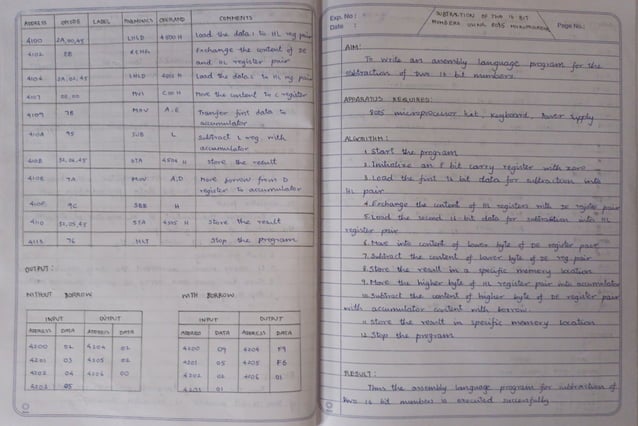 ADDRESS OPCODE LABEL MNEMONICS OPERAND COMMENTS
4100 2A,00,45 LHLD 4500 H Load the data 1 to HL reg pair
4103 EB XCHG Exchange the content of DE
and HL register pair
4104 2A,02,45 LHLD 4502 H Load the data 1 to HL reg pair
4107 0E,00 MVI C 00 H Move the content to C register
4109 7B MOV A,E Transfer first data to
accumulator
410A 95 SUB L Subtract L reg. with
accumulator
410B 32,04,45 STA 4504 H Store the result
410E 7A MOV A,D Move borrow from D
register to accumulator
410F 9C SBB H
4110 32,05,45 STA 4505 H Store the result
4113 76 HLT Stop the program
OUTPUT:
WITHOUT BORROW WITH BORROW
INPUT OUTPUT INPUT OUTPUT
ADDRESS DATA ADDRESS DATA ADDRESS DATA ADDRESS DATA
4200 02 4204 02 4200 09 4204 F9
4201 03 4205 02 4201 05 4205 F6
4202 04 4206 00 4202 02 4206 01
4203 05 4203 01
10
Exp. No: SUBTRACTION OF TWO 16 BIT
Date : NUMBERS USING 8085 MICROPROCESSOR Page No.:
AIM:
To write an assembly language program for the
subtraction of two 16 bit numbers.
APPARATUS REQUIRED:
8085 microprocessor kit, Keyboard, Power Supply
ALGORITHM:
1. Start the program
2. Initialize an 8 bit carry register with zero
3. Load the first 16 bit data for subtraction into
HL pair
4. Exchange the content of HL registers with DE register pair
5. Load the second 16 bit data for subtraction into HL
register pair
6. Move into content of lower byte of DE register pair
7. Subtract the content of lower byte of DE reg. pair
8. Store the result in a specific memory location
9. Move the higher byte of HL register pair into accumulator
10. Subtract the content of higher byte of DE register pair
with accumulator content with borrow.
11. Store the result in specific memory location
12. Stop the program
RESULT:
Thus the assembly language program for subtraction of
two 16 bit numbers is executed successfully
10